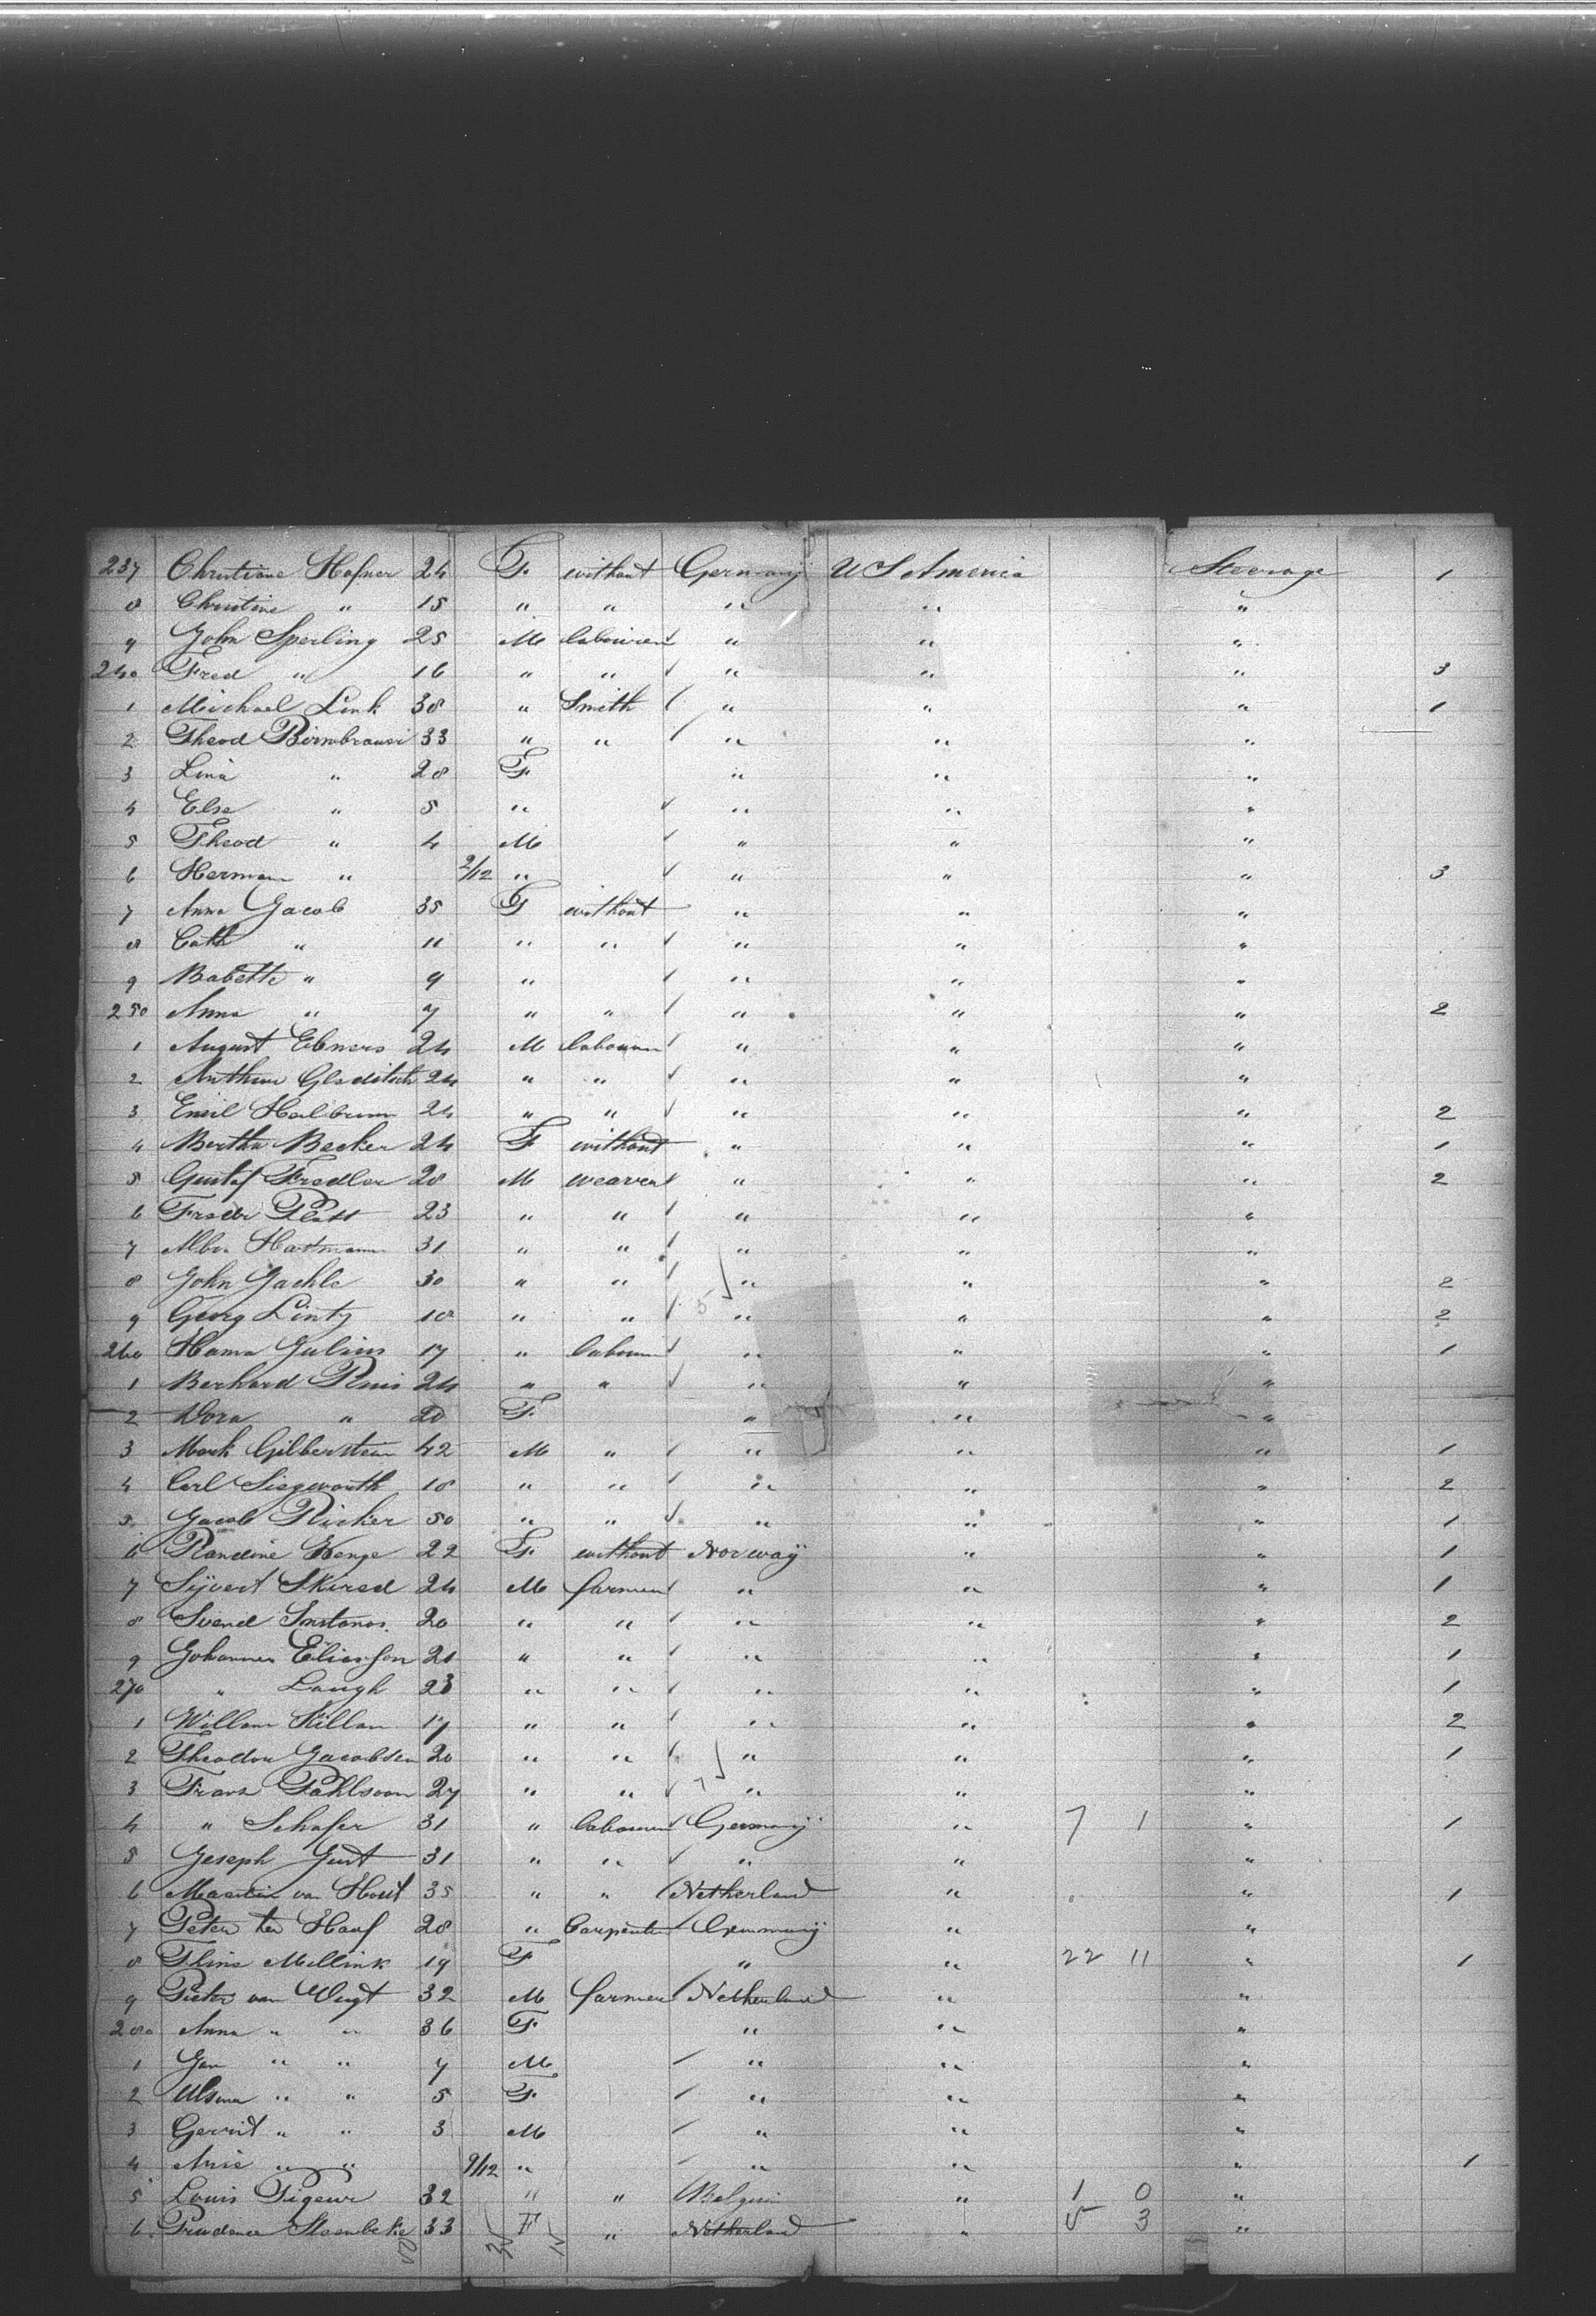 237 Christiane Hafner 24 F. without Germany U S America Steerage 1
8 Christine " 15 " " " " "
9 John Sperling 25 M labourer " " "
240 Fred " 16 " " " " " 3
1 Michael Link 38 " Smith " " " 1
2 Theod Birnbrauer 33 " " " " "
3 Lina " 28 F " " "
4 Else " 5 " " " "
5 Theod " 4 M " " "
6 Herman " 2/12 " " " " 3
7 Anna Jacob 35 F without " " "
8 Cath " 11 " " " " "
9 Babette " 9 " " " "
250 Anna " 7 " " " " " 2
1 August Ebners 24 M labourer " " "
2 Arthur Gleditsch 24 " " " " "
3 Emil Heilbrunn 24 " " " " " 2
4 Bertha Becker 24 F without " " " 1
5 Gustaf Fredler 28 M weaver " " " 2
6 Fredr Platt 23 " " " " "
7 Hartmann 31 " " " " "
8 John Jaehle 30 " " " " " 2
9 Georg Lintz 18 " " " " " 2
260 Hama Julius 17 " labourer " " " 1
1 Berhard 24 " " " " "
2 Dora " 20 F. " " "
3 Mark Gilberstein 42 M " " " " 1
4 Carl Siegwarth 18 " " " " " 2
5 Jacob Ricker 50 " " " " " 1
6 Randine Wenge 22 F. without Norway " " 1
7 Sijvert Skired 24 M farmer " " " 1
8 Svend 20 " " " " " 2
9 Johannes Eliasson 21 " " " " " 1
270 " Laugh 23 " " " " " 1
1 Willam Killan 17 " " " " " 2
2 Theodor Jacobsen 20 " " " " " 1
3 Frans Pahlsoon 27 " " " " "
4 " Schafer 31 " labourer Germany " 7 1 " 1
5 Joseph Just 31 " " " " "
6 Martin van Hout 35 " " Netherland " " 1
7 Peter ter Hauf 28 " Carpenter Germany " "
8 Mellink 19 F " " 22 11 " 1
9 Pieter van Vlugt 32 M farmer Netherland " "
280 Anna " " 36 F " " "
1 Jan " " 7 M " " "
2 " " 5 F " " "
3 Gerrit " " 3 M " " "
4 Arie " " 9/12 " " " " 1
5 Louis Pigeur 32 " " Belgium " 1 0 "
6 Prudence Steenbeke 33 F " Netherland " 5 3 "